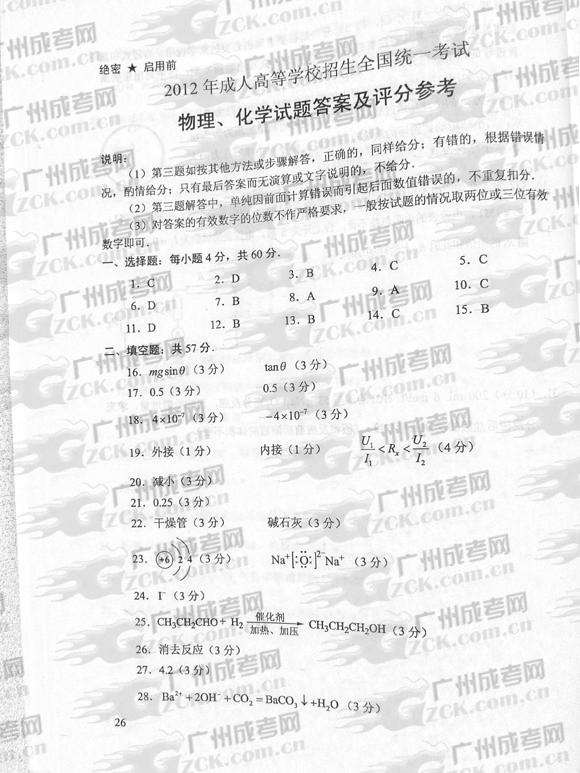 绝密 ★ 启用前
2012 年成人高等学校招生全国统一考试
物理、化学试题答案及评分参考
说明：
（1）第三题如按其他方法或步骤解答，正确的，同样给分；有错的，根据错误情
况，酌情给分；只有最后答案而无演算或文字说明的，不给分．
（2）第三题解答中，单纯因前面计算错误而引起后面数值错误的，不重复扣分．
（3）对答案的有效数字的位数不作严格要求，一般按试题的情况取两位或三位有效
数字即可．
一、选择题：每小题 4 分，共 60 分．
1. C 2. D 3. B 4. C 5. C
6. D 7. B 8. A 9. A 10. C
11. D 12. B 13. B 14. C 15. B
二、填空题：共 57 分．
16. mgsinθ（3 分） tanθ（3 分）
17. 0.5（3 分） 0.5（3 分）
18. 4×10⁻⁷（3 分） －4×10⁻⁷（3 分）
19. 外接（1 分） 内接（1 分） U₁/I₁ < Rₓ < U₂/I₂（4 分）
20. 减小（3 分）
21. 0.25（3 分）
22. 干燥管（3 分） 碱石灰（3 分）
23. +6 2 4（3 分） Na⁺[:O:]²⁻Na⁺（3 分）
24. I⁻（3 分）
25. CH₃CH₂CHO + H₂ 催化剂 加热、加压 → CH₃CH₂CH₂OH（3 分）
26. 消去反应（3 分）
27. 4.2（3 分）
28. Ba²⁺+2OH⁻+CO₂＝BaCO₃↓+H₂O（3 分）
26
广州成考网
GZCK.com.cn